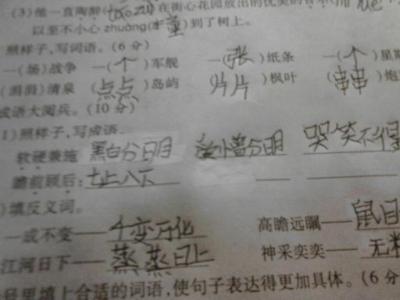 (3)他一直陶醉 在街心花园放出的优美的
以至不小心 zhuàng( )到了树上。
照样子,写词语。(6分)
一(场)战争 一(个)军舰 (张)纸条 一(个)星
(涓涓)清泉 (点点)岛屿 (片片)枫叶 (串串)炮
成语大阅兵。(10分)
1)照样子,写成语。
软硬兼施 黑白分明 爱憎分明 哭笑不得
瞻前顾后: 七上八下
)填反义词。
一成不变——千变万化 高瞻远瞩——鼠目
江河日下——蒸蒸日上 神采奕奕——无
里填上合适的词语,使句子表达得更加具体。(6分